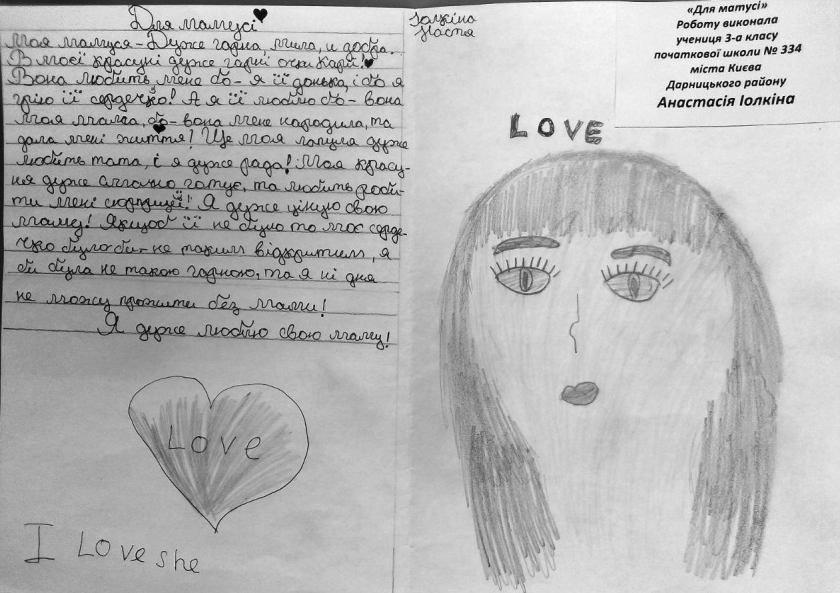 Для мамусі
Моя мамуся - Дуже гарна, мила, и добра.
В моєї красуні дуже гарні очи карії!
Вона любить мене бо - я її донька, і бо я
грію її сердечко! А я її люблю бо - вона
моя мама, бо - вона мене народила, та
дала мені життя! Ще моя матуля дуже
любить тата, і я дуже рада! Моя красу-
ня дуже смачно готує, та любить роби-
ти мені сюрпризи! Я дуже ціную свою
маму! Якщоб її не було то моє серде-
чко було би - не таким відкритим, я
би була не такою гарною, та я ні дня
не можу прожити без мами!
Я дуже люблю свою маму!
Love
I Love she
Іолкіна
Настя
«Для матусі»
Роботу виконала
учениця 3-а класу
початкової школи № 334
міста Києва
Дарницького району
Анастасія Іолкіна
LOVE